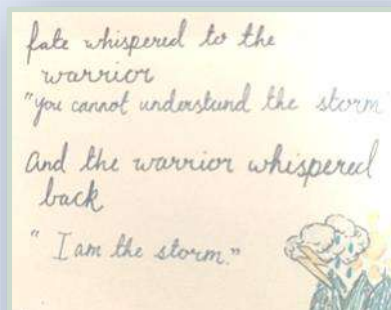 fate whispered to the
warrior
"you cannot understand the storm
and the warrior whispered
back
" I am the storm."